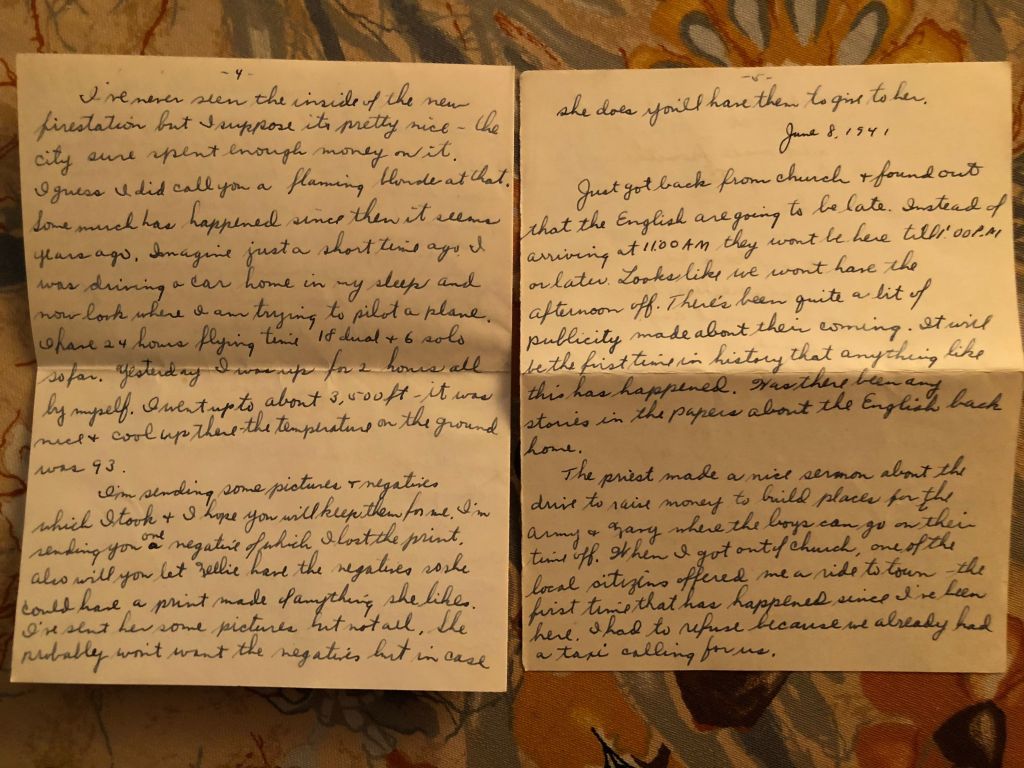 -4-
I've never seen the inside of the new
firestation but I suppose its pretty nice - the
city sure spent enough money on it.
I guess I did call you a flaming blonde at that.
Some much has happened since then it seems
years ago. Imagine just a short time ago I
was driving a car home in my sleep and
now look where I am trying to pilot a plane.
I have 24 hours flying time 18 dual + 6 solo
so far. Yesterday I was up for 2 hours all
by myself. I went up to about 3,500 ft - it was
nice + cool up there - the temperature on the ground
was 93.
I'm sending some pictures + negatives
which I took + I hope you will keep them for me. I'm
sending you one negative of which I lost the print.
Also will you let Nellie have the negatives so she
could have a print made of anything she likes.
I've sent her some pictures but not all. She
probably won't want the negatives but in case
-5-
she does you'll have them to give to her.
June 8, 1941
Just got back from church + found out
that the English are going to be late. Instead of
arriving at 11:00 AM they wont be here till 1:00 P.M
or later. Looks like we wont have the
afternoon off. There's been quite a bit of
publicity made about their coming. It will
be the first time in history that anything like
this has happened. Was there been any
stories in the papers about the English back
home.
The priest made a nice sermon about the
drive to raise money to build places for the
Army & Navy where the boys can go on their
time off. When I got out of church, one of the
local citizins offered me a ride to town - the
first time that has happened since I've been
here. I had to refuse because we already had
a taxi calling for us.